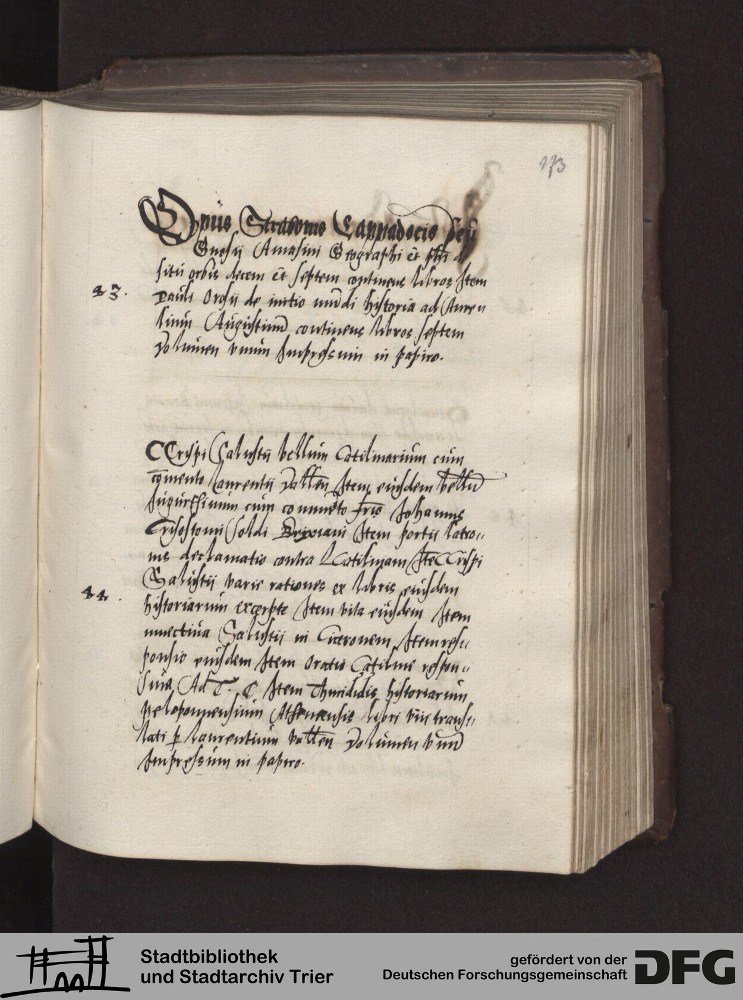 173
Opus Strabonis Cappadocis seu
Gnosii Amasini Geographi et
situ orbis decem et septem continens libros Item
43.
Pauli Orosii de initio mundi historia ad Aure
lium Augustinum continens libros septem
Volumen unum Impressum in papiro.
C Crispi Salustii bellum Catilinarium cum
comento Laurentii Vallen Item eiusdem bellum
Iugurthinum cum commento fris Iohannis
Crisostomi Soldi Brixiani Item portii latro=
nis declamatio contra L Catilinam Ite C Crispi
Salustii varie rationes ex libris eiusdem
44.
historiarum excerpte Item vita eiusdem Item
inuectiua Salustii in Ciceronem, Item res=
ponsio eiusdem Item Oratio Catiline respon=
siua, Ad T. C Item Thuididis historiarum
peloponnensium Atheniensis libri viii transt=
lati p laurentium vallen Volumen unum
Impressum in papiro.
Stadtbibliothek
und Stadtarchiv Trier
gefördert von der
Deutschen Forschungsgemeinschaft
DFG